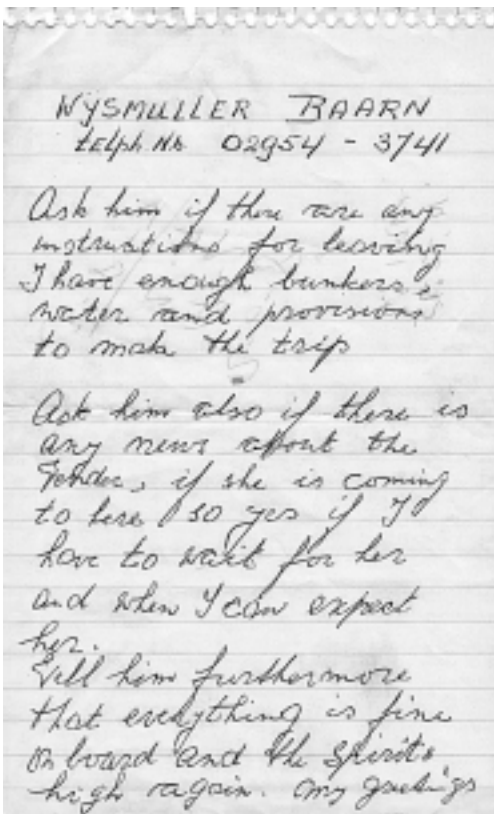 WIJSMULLER BAARN
telph. Nr. 02954 - 3741
Ask him if there are any
instructions for leaving
I have enough bunkers,
water and provisions
to make the trip
Ask him also if there is
any news about the
Tender, if she is coming
to here so yes if I
have to wait for her
and when I can expect
her.
Tell him furthermore
that everything is fine
on board and the spirits
high again. My greetings